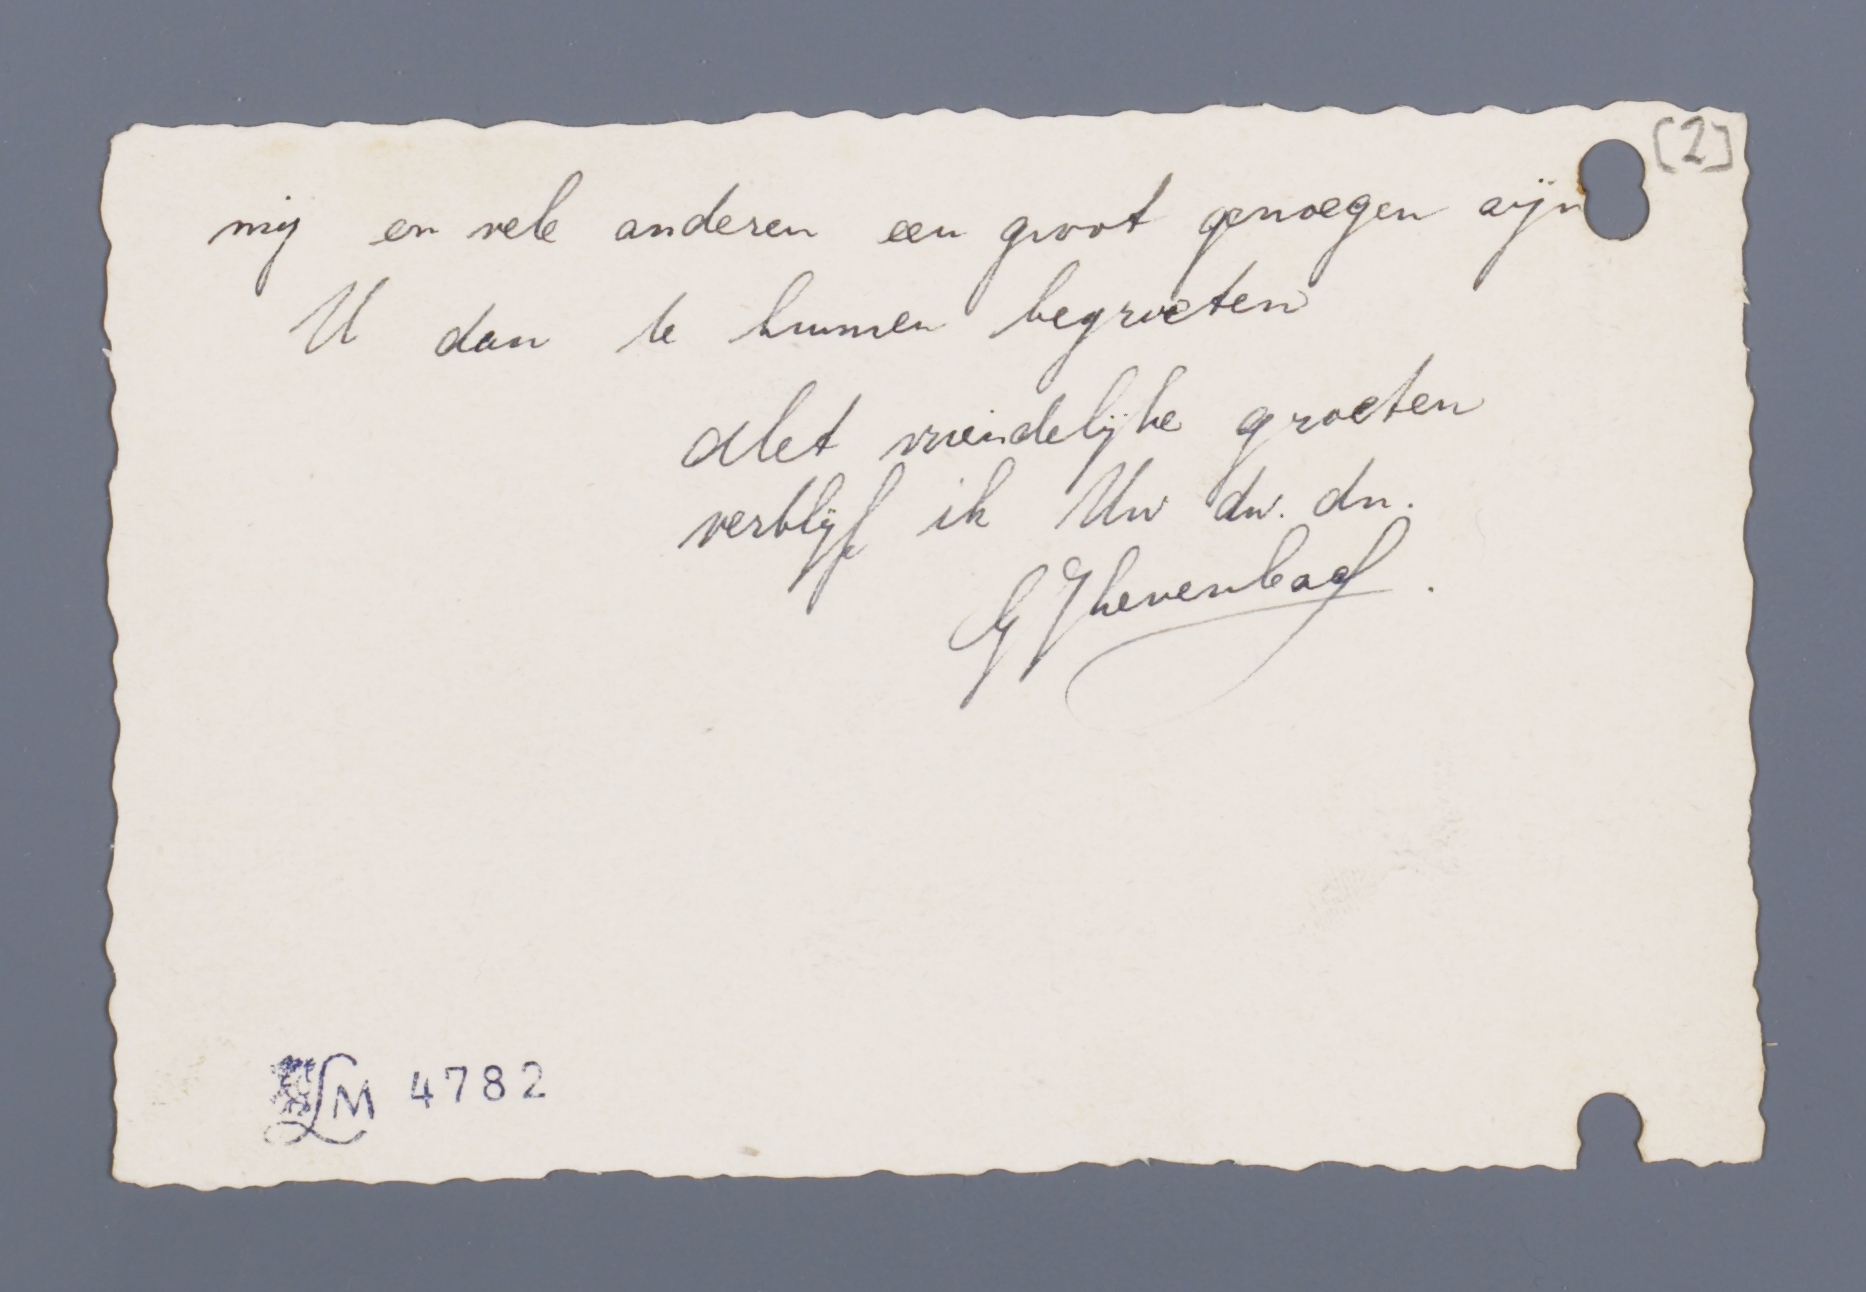 [2]
mij en vele anderen een groot genoegen zijn
U dan te kunnen begroeten
Met vriendelijke groeten
verblijf ik Uw dw. dn.
G
LM 4782